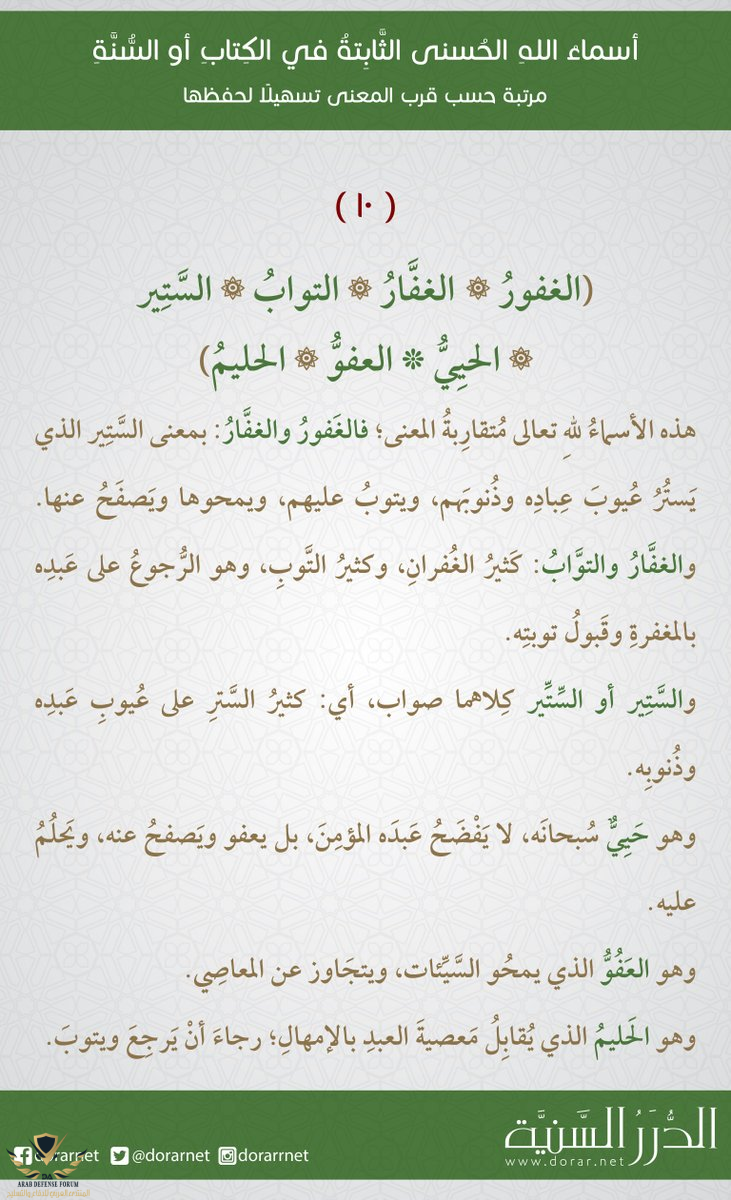 أسماءُ اللهِ الحُسنى الثَّابِتةُ في الكِتابِ أو السُّنَّةِ
مرتبة حسب قرب المعنى تسهيلًا لحفظها
( ١٠ )
(الغفورُ ۞ الغفَّارُ ۞ التوابُ ۞ السَّتِير
۞ الحيِيُّ ❊ العفوُّ ۞ الحليمُ)
هذه الأسماءُ للهِ تعالى مُتقارِبةُ المعنى؛ فالغَفورُ والغفَّارُ: بمعنى السَّتِير الذي
يَستُرُ عُيوبَ عِبادِه وذُنوبَهم، ويتوبُ عليهم، ويمحوها ويَصفَحُ عنها.
والغفَّارُ والتوَّابُ: كَثيرُ الغُفرانِ، وكثيرُ التَّوبِ، وهو الرُّجوعُ على عَبدِه
بالمغفرةِ وقَبولُ توبتِه.
والسَّتِير أو السِّتِّير كِلاهما صواب، أي: كثيرُ السَّترِ على عُيوبِ عَبدِه
وذُنوبِه.
وهو حَيِيٌّ سُبحانَه، لا يَفْضَحُ عَبدَه المؤمِنَ، بل يعفو ويَصفحُ عنه، ويَحلُمُ
عليه.
وهو العَفُوُّ الذي يمحُو السَّيِّئات، ويتجَاوز عن المعاصِي.
وهو الحَليمُ الذي يُقابِلُ مَعصيةَ العبدِ بالإمهالِ؛ رجاءَ أنْ يَرجِعَ ويتوبَ.
الدُّرَرُ السَّنِيَّة
www.dorar.net
dorarnet @dorarnet dorarrnet
ARAB DEFENSE FORUM